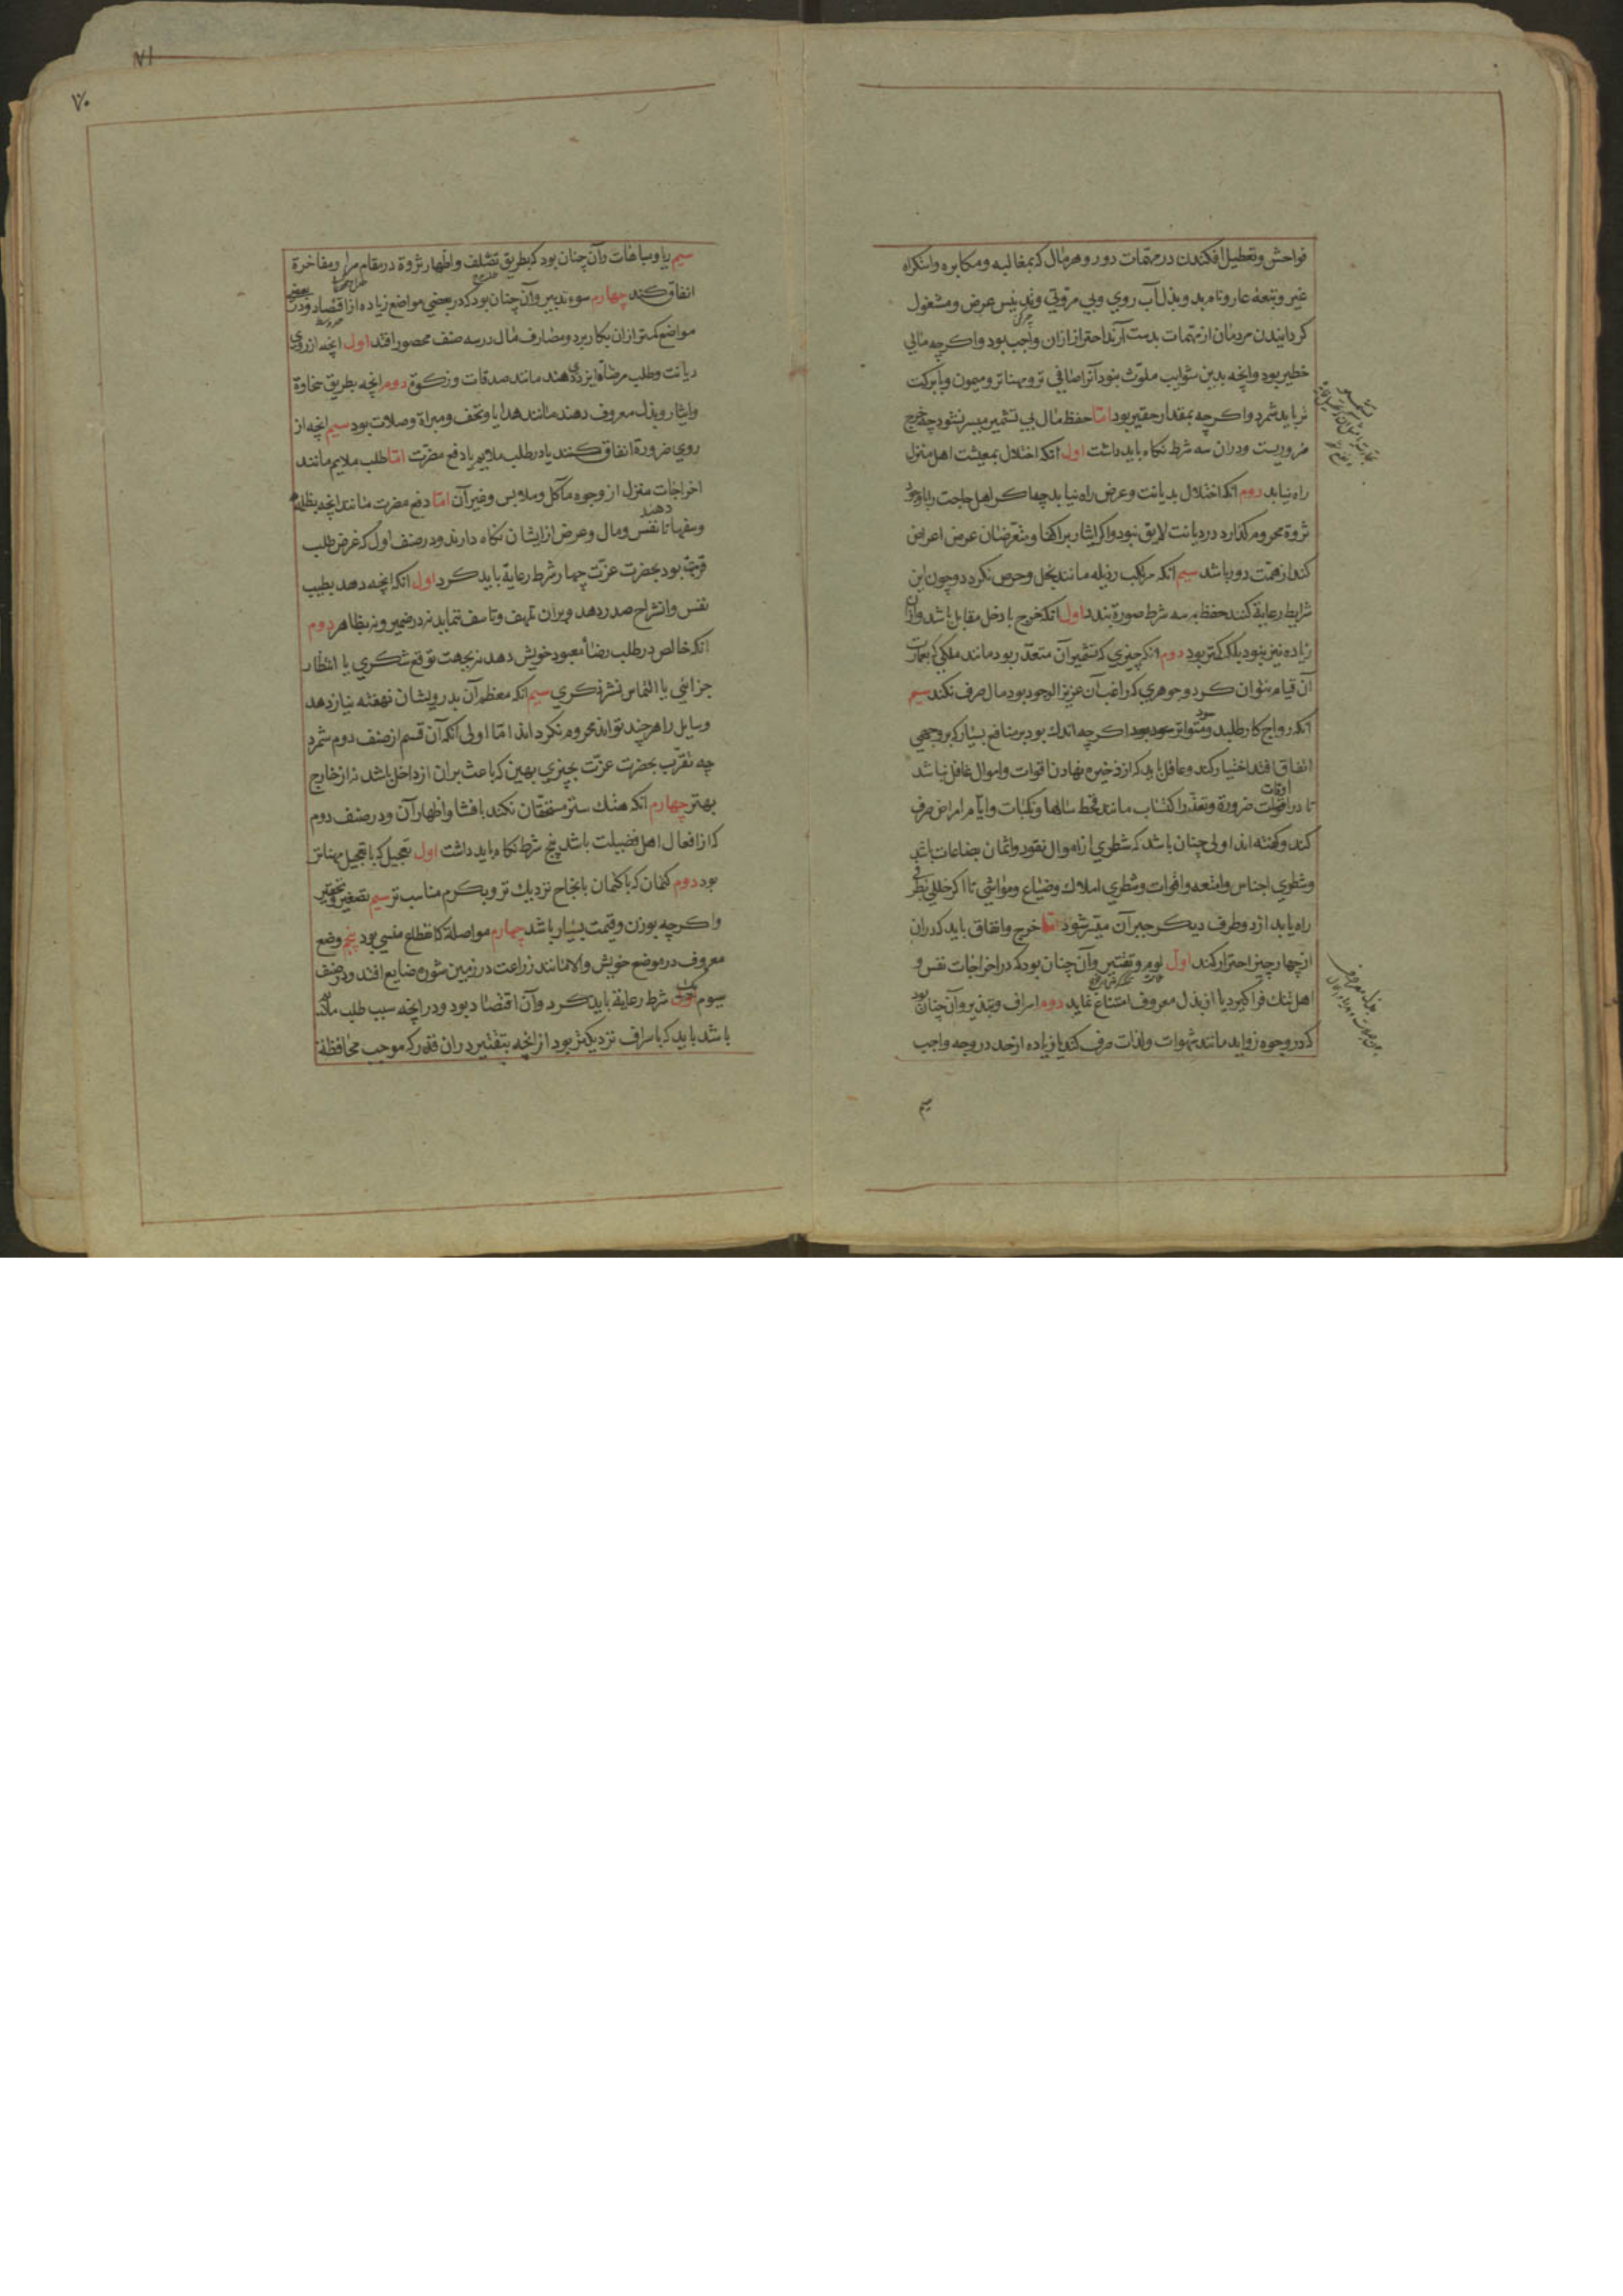 فواحش و تعطیل افکندن در مهمات دور و هر مال که بمغالبه و مکابره و استکراه
غیر و تبعه عار و نام بد و بذل آب روی و بی مروتی و تدنیس عرض و مشغول
کردانیدن مردمان از مهمات بدست آرند احتراز ازان واجب بود و اکرچه مالی
خطیر بود و انچه بدین شوایب ملوث نبود آنرا صافی تر و مهناتر و میمون و بابرکت
تر باید شمرد و اکرچه بمقدار حقیر بود اما حفظ مال بی تثمیر میسر نشود چه خرج
ضروریست و دران سه شرط نکاه باید داشت اول آنکه اختلال بمعیشت اهل منزل
راه نیابد دوم انکه اختلال بدیانت و عرض راه نیابد چه اکر اهل حاجت را باوجود
ثروة محروم کذارد در دیانت لایق نبود و اکر ایثار بر اکفا و متعرضان عرض اعراض
کند از همت دور باشد سیم انکه مرتکب رذیله مانند بخل و حرص نکردد و چون این
شرایط رعایة کنند حفظ به سه شرط صورة بندد اول انکه خرج با دخل مقابل باشد و ازان
زیاده نیز نبود بلکه کمتر بود دوم انکه چیزی که تثمیر آن متعذر بود مانند ملکی که بعمارت
آن قیام نتوان کرد و جوهری که راغب آن عزیز الوجود بود مال صرف نکند سیم
انکه رواج کار طلبد و سود متواتر اکرچه اندک بود بر منافع بسیار که بر وجهی
اتفاق افتد اختیار کند و عاقل باید که از ذخیره نهادن اقوات و اموال غافل نباشد
تا در اوقات ضرورة و تعذر اکتساب مانند قحط سالها و نکبات و ایام امراض صرف
کند و کفته اند اولی چنان باشد که شطری از اموال نقود و اثمان بضاعات باشد
و شطری اجناس و امتعه و اقوات و شطری املاک و ضیاع و مواشی تا اکر خللی بطرفی
راه یابد از دو طرف دیکر جبر آن میسر شود اما خرج و انفاق باید که دران
از چهار چیز احتراز کند اول لوم و تقتیر و آن چنان بود که در اخراجات نفس و
اهل تنک فراکیرد یا از بذل معروف امتناع نماید دوم اسراف و تبذیر و آن چنان بود
که در وجوه زواید مانند شهوات و لذات صرف کند یا زیاده از حد در وجه واجب
سیم
٧١
٧٠
سیم ریا و مباهات و آن چنان بود که بطریق تصلف و اظهار ثروة در مقام مرا و مفاخرة
انفاق کند چهارم سوء تدبیر و آن چنان بود که در بعضی مواضع زیاده از اقتصاد و در بعضی
مواضع کمتر ازان بکار برد و مصارف مال در سه صنف محصور افتد اول انچه از روی
دیانت و طلب مرضاة ایزدی دهند مانند صدقات و زکوة دوم انچه بطریق سخاوة
و ایثار و بذل معروف دهند مانند هدایا و تحف و مبراة و صلات بود سیم انچه از
روی ضرورة انفاق کنند یا در طلب ملایم یا دفع مضرت اما طلب ملایم مانند
اخراجات منزل از وجوه مآکل و ملابس و غیر آن اما دفع مضرت مانند انچه بظلمه
و سفها دهند تا نفس و مال و عرض از ایشان نکاه دارند و در صنف اول که غرض طلب
قربة بود بحضرت عزت چهار شرط رعایة باید کرد اول انکه انچه دهد بطیب
نفس و انشراح صدر دهد و بران تلهف و تاسف ننماید نه در ضمیر و نه بظاهر دوم
انکه خالص در طلب رضاء معبود خویش دهد نه بجهت توقع شکری یا انتظار
جزائی یا التماس نشر ذکری سیم انکه معظم آن بدرویشان نهفته نیاز دهد
و سایل را هرچند تواند محروم نکرداند اما اولی آنکه آن قسم از صنف دوم شمرد
چه تقرب بحضرت عزت بچیزی بهین که باعث بران از داخل باشد نه از خارج
بهتر چهارم انکه هتک ستر مستحقان نکند بافشا و اظهار آن و در صنف دوم
که از افعال اهل فضیلت باشد پنج شرط نکاه باید داشت اول تعجیل که با تعجیل مهناتر
بود دوم کتمان که با کتمان بانجاح نزدیک تر و بکرم مناسب تر سیم تصغیر و تحقیر
و اکرچه بوزن و قیمت بسیار باشد چهارم مواصلة که انقطاع منسی بود پنجم وضع
معروف در موضع خویش و الا مانند زراعت در زمین شوره ضایع افتد و در صنف
سیوم یک شرط رعایة باید کرد و آن اقتصاد بود و در انچه سبب طلب ملایم
باشد باید که باسراف نزدیکتر بود از انچه بتقتیر دران قدر که موجب محافظة